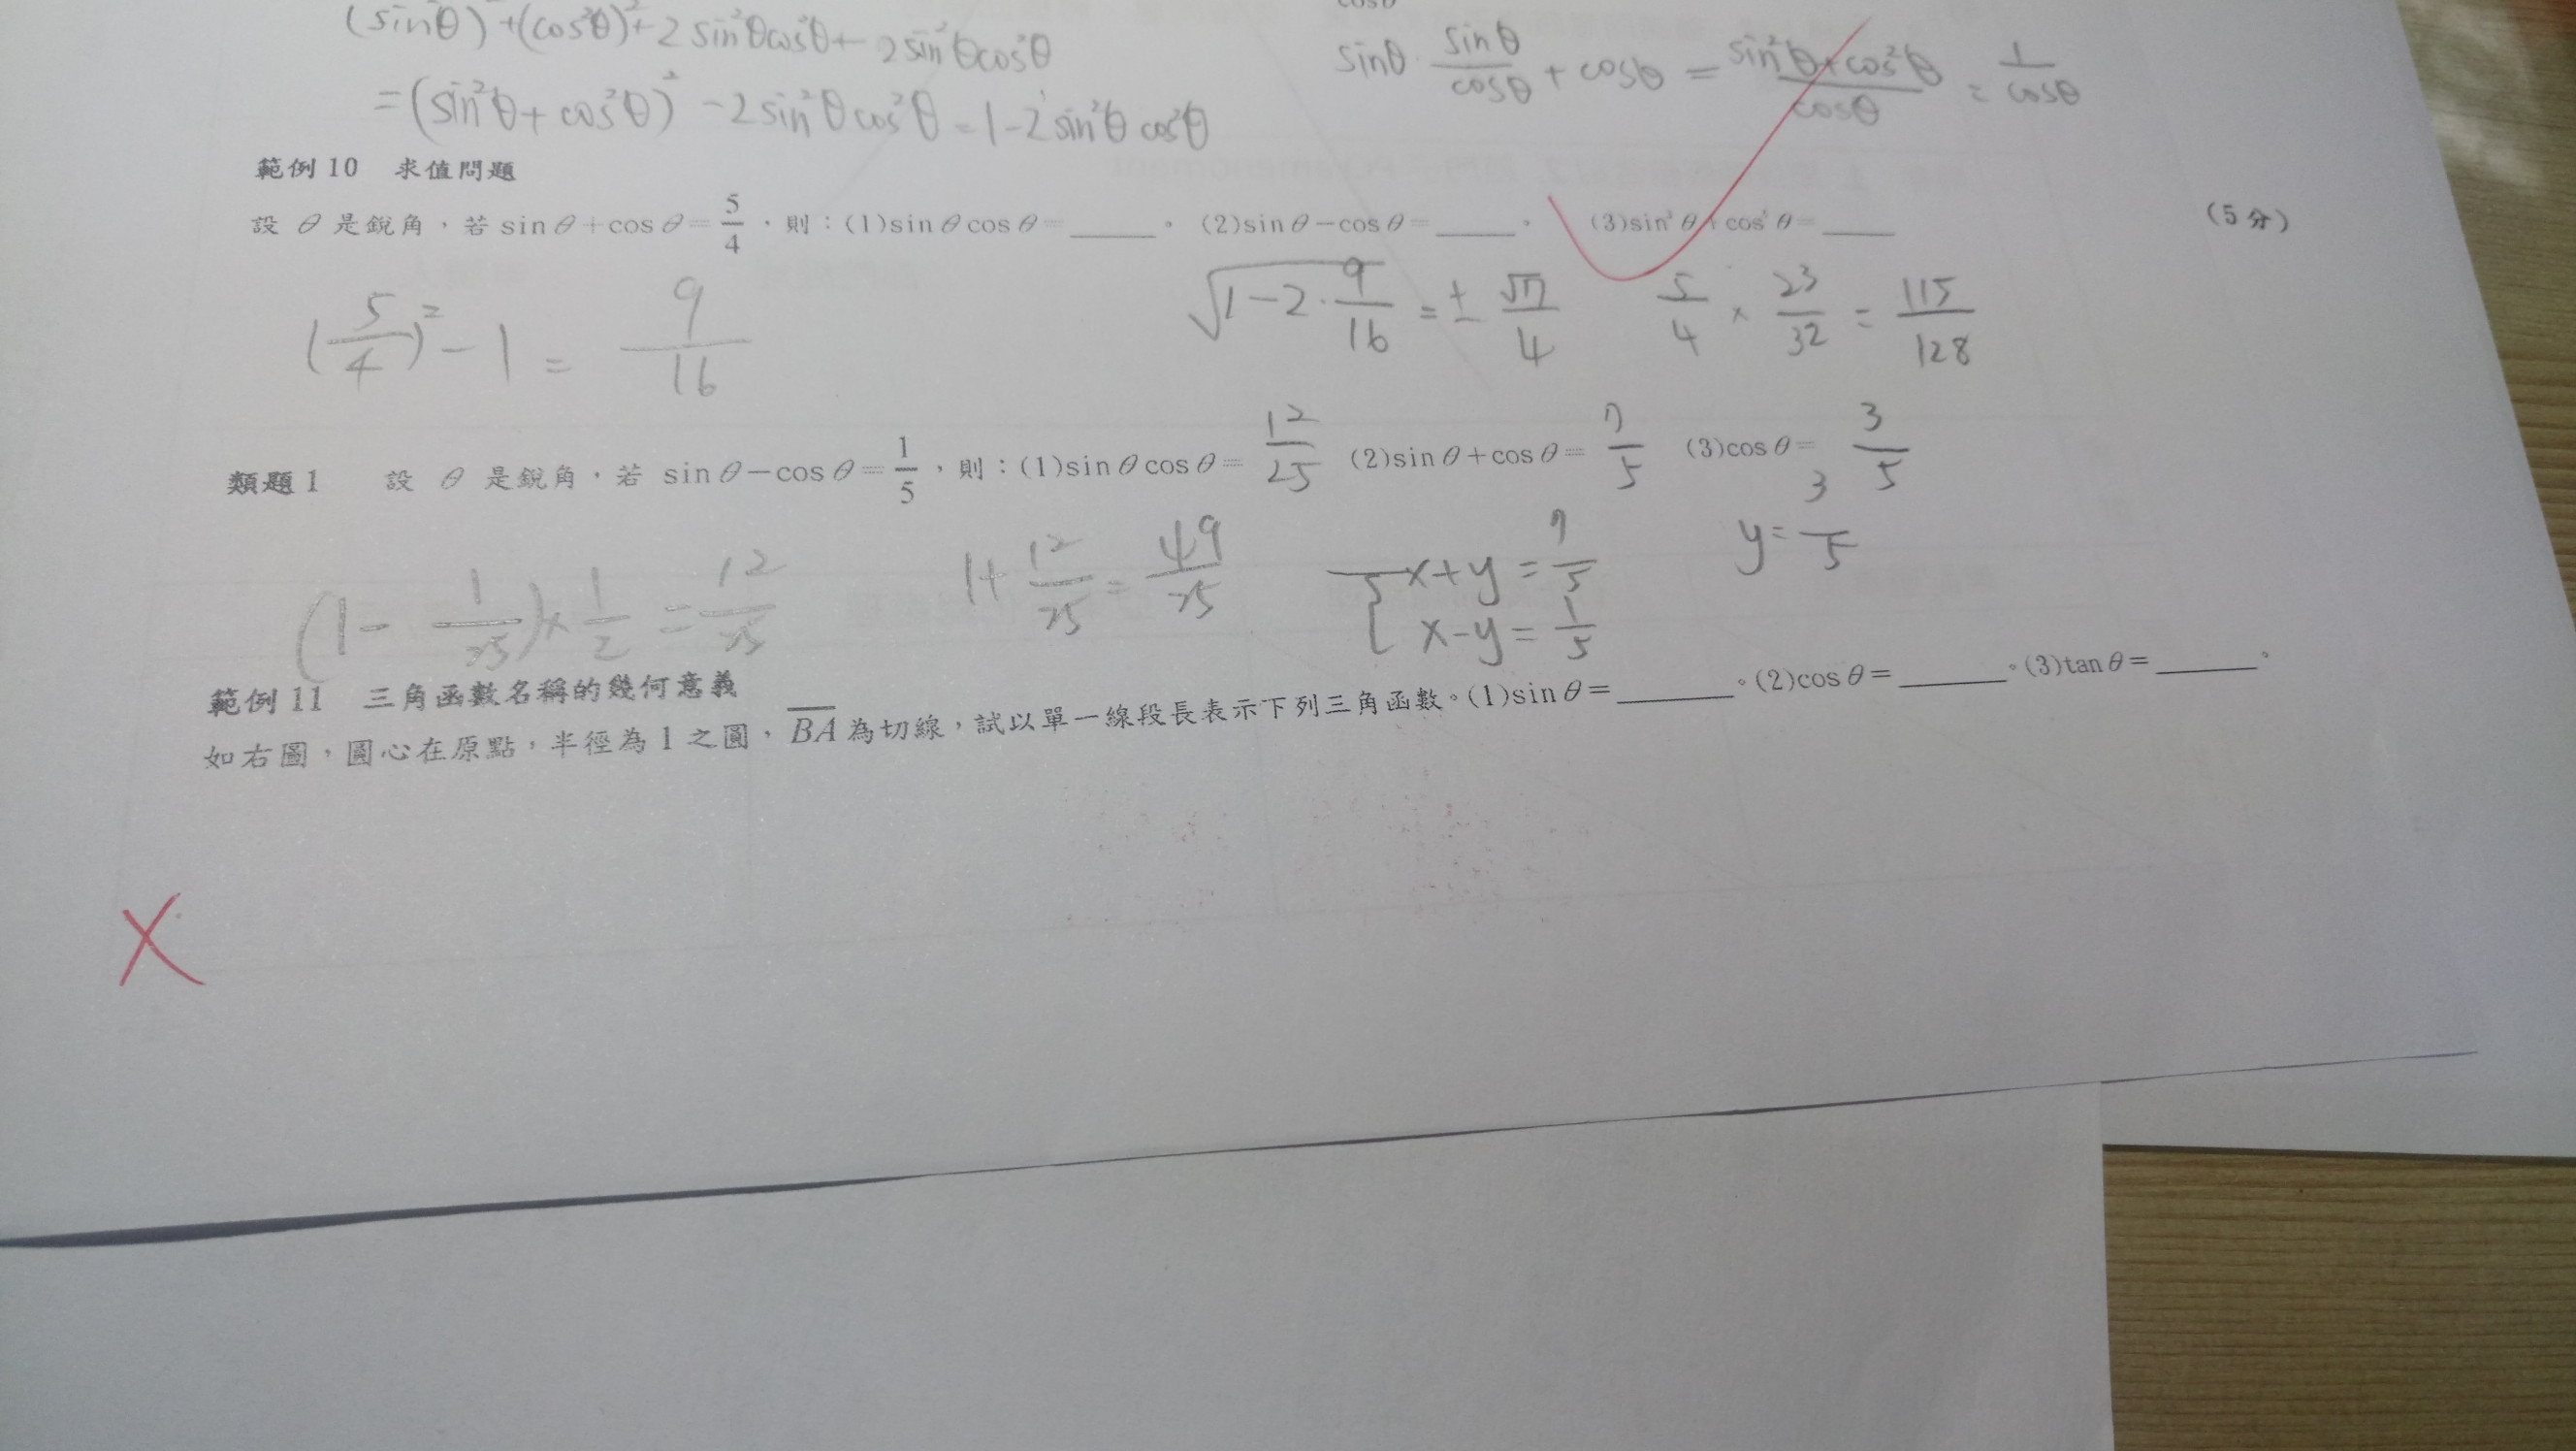 (sin²θ)²+(cos²θ)²+2sin²θcos²θ+-2sin²θcos²θ
=(sin²θ+cos²θ)²-2sin²θcos²θ=1-2sin²θcos²θ
cosθ
sinθ·sinθ/cosθ+cosθ=sin²θ+cos²θ/cosθ=1/cosθ
範例10 求值問題
設 θ 是銳角，若 sinθ+cosθ=5/4，則：(1)sinθcosθ=____。 (2)sinθ-cosθ=____。 (3)sin³θ+cos³θ=____ (5分)
(5/4)²-1=9/16
√1-2·9/16=±√7/4
5/4×23/32=115/128
類題1 設 θ 是銳角，若 sinθ-cosθ=1/5，則：(1)sinθcosθ=12/25 (2)sinθ+cosθ=7/5 (3)cosθ=3/5
(1-1/25)×1/2=12/25
1+12/25=49/25
{x+y=7/5
x-y=1/5
y=3/5
範例11 三角函數名稱的幾何意義
如右圖，圓心在原點，半徑為1之圓，BA為切線，試以單一線段長表示下列三角函數。(1)sinθ=____。(2)cosθ=____。(3)tanθ=____。